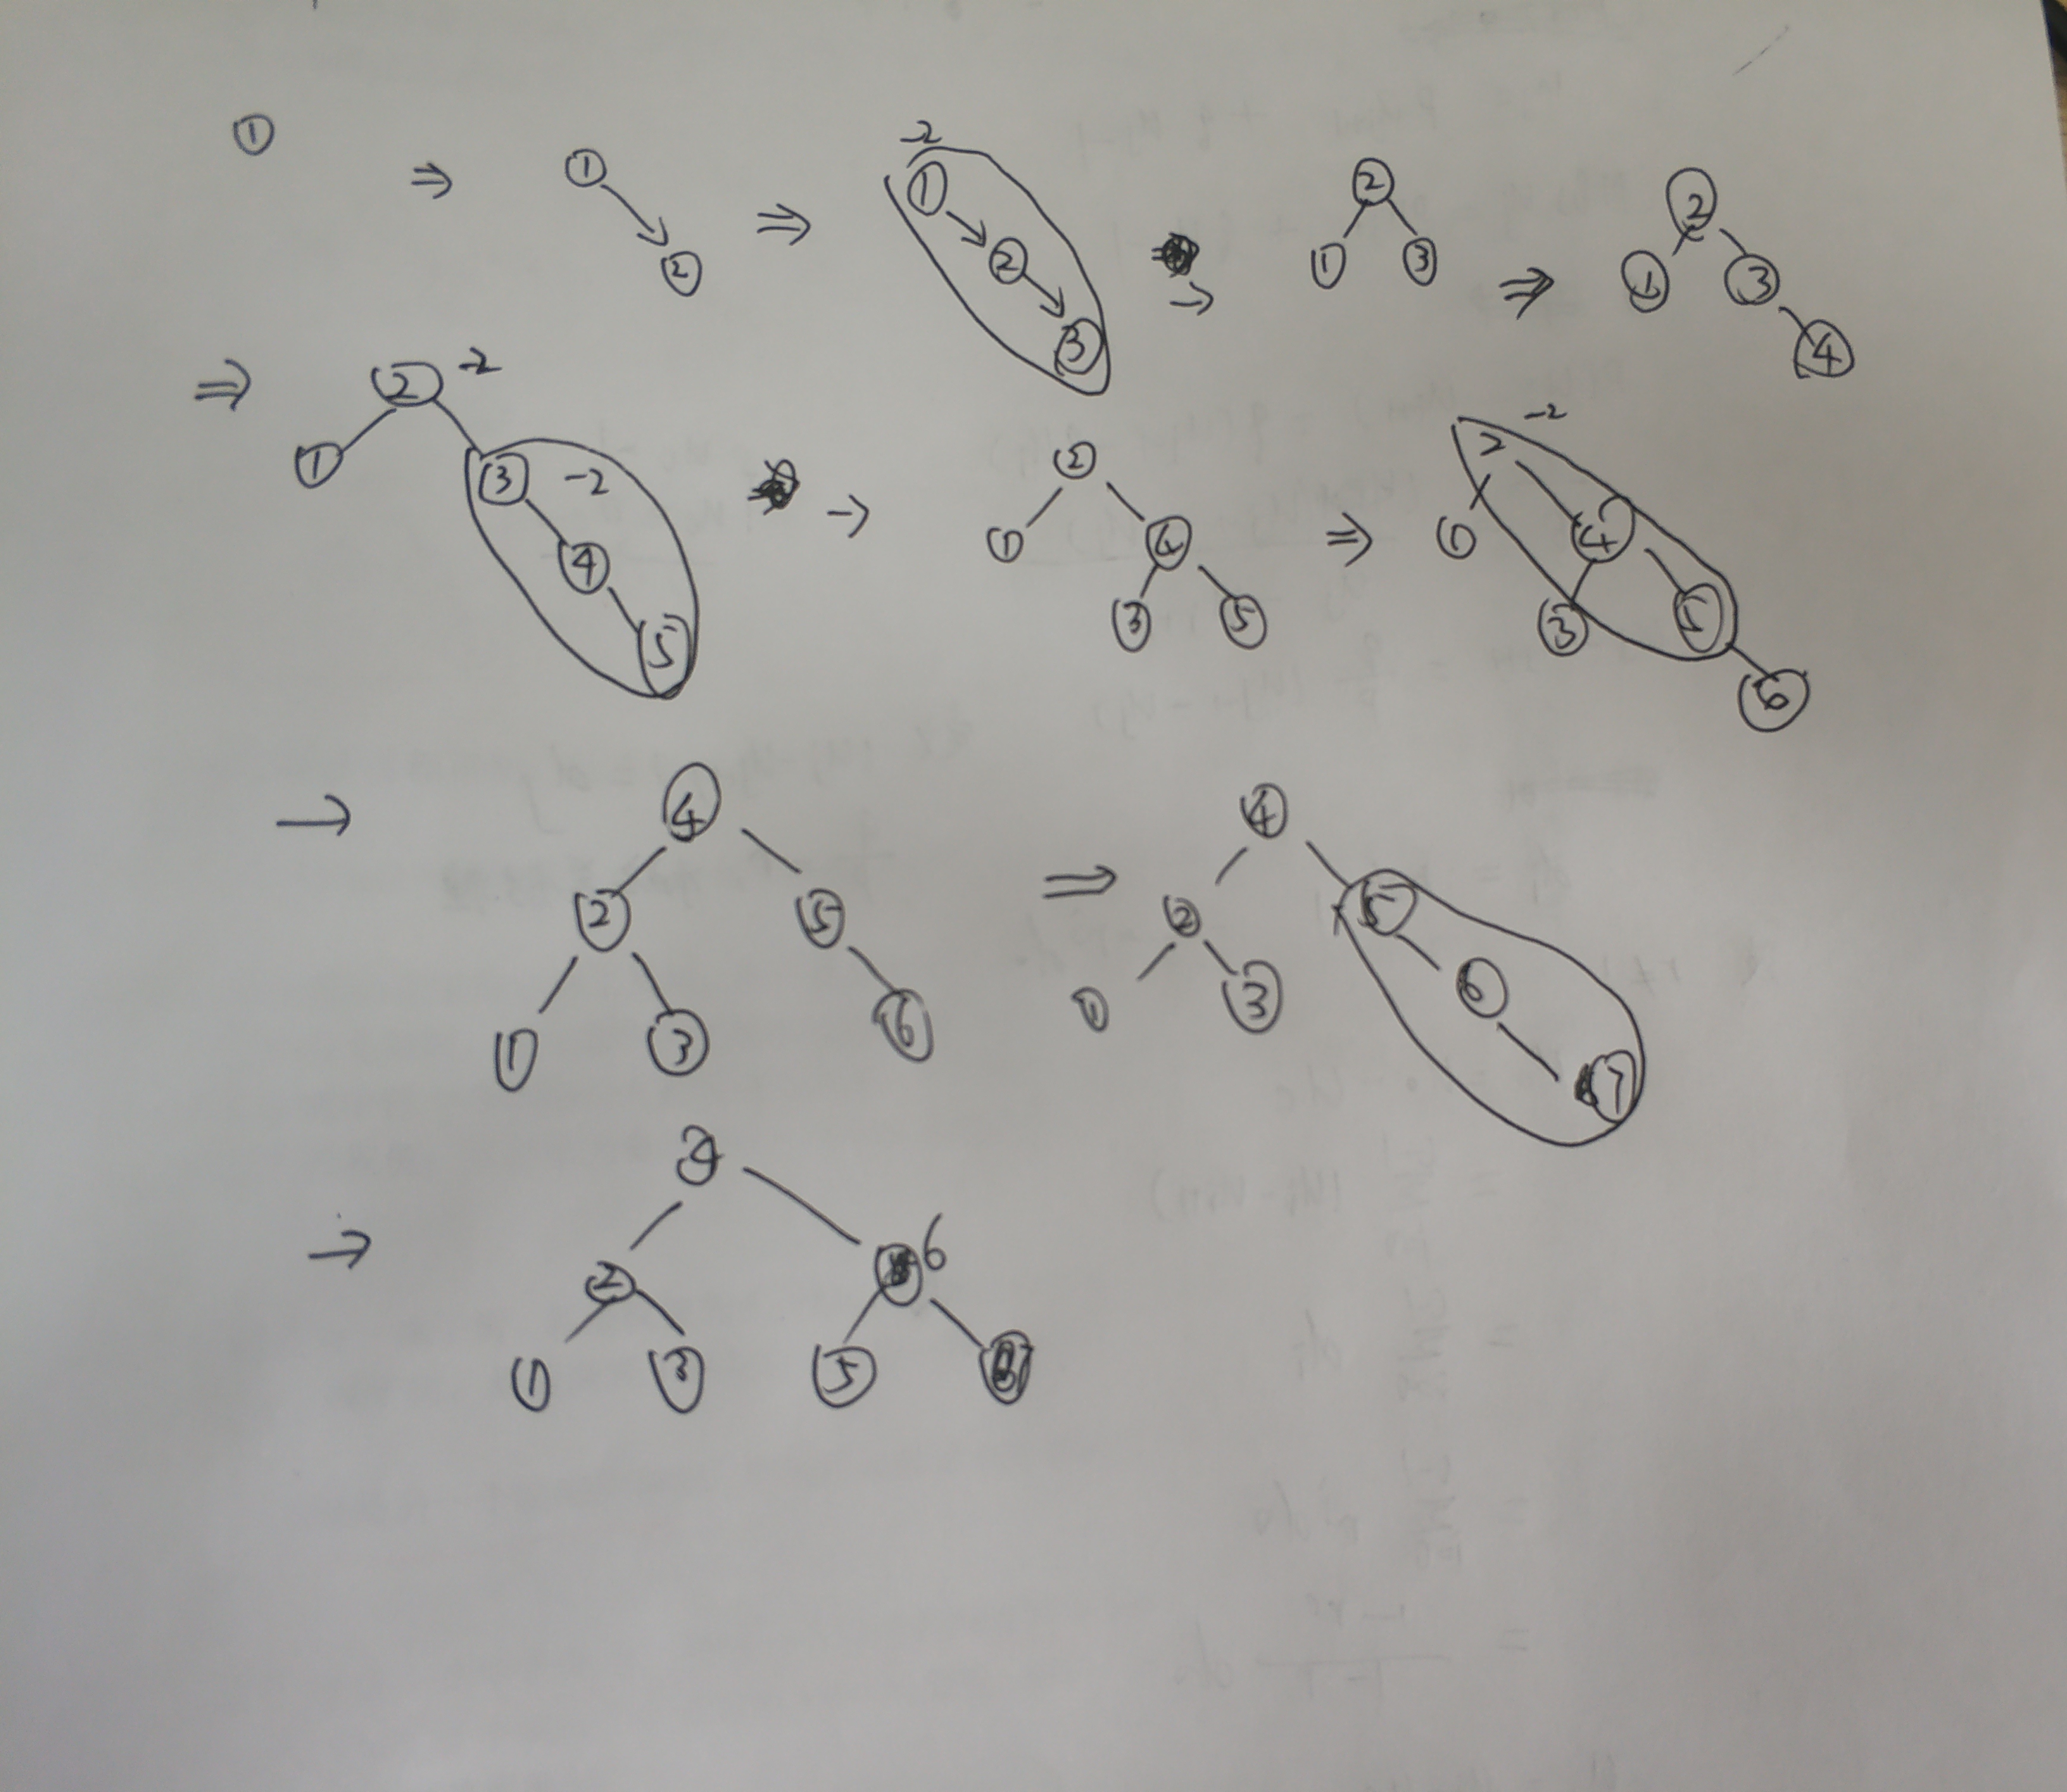 ① ⇒ ① ② ⇒ -2 ① ② ③ → ② ① ③ ⇒ ② ① ③ ④
⇒ ② -2 ① ③ -2 ④ ⑤ → ② ① ④ ③ ⑤ ⇒ 2 -2 ① ④ ③ ⑤ ⑥
→ ④ ② ⑤ ① ③ ⑥ ⇒ ④ ② ⑤ ① ③ ⑥ ⑦
→ 4 ② 6 ① ③ ⑤